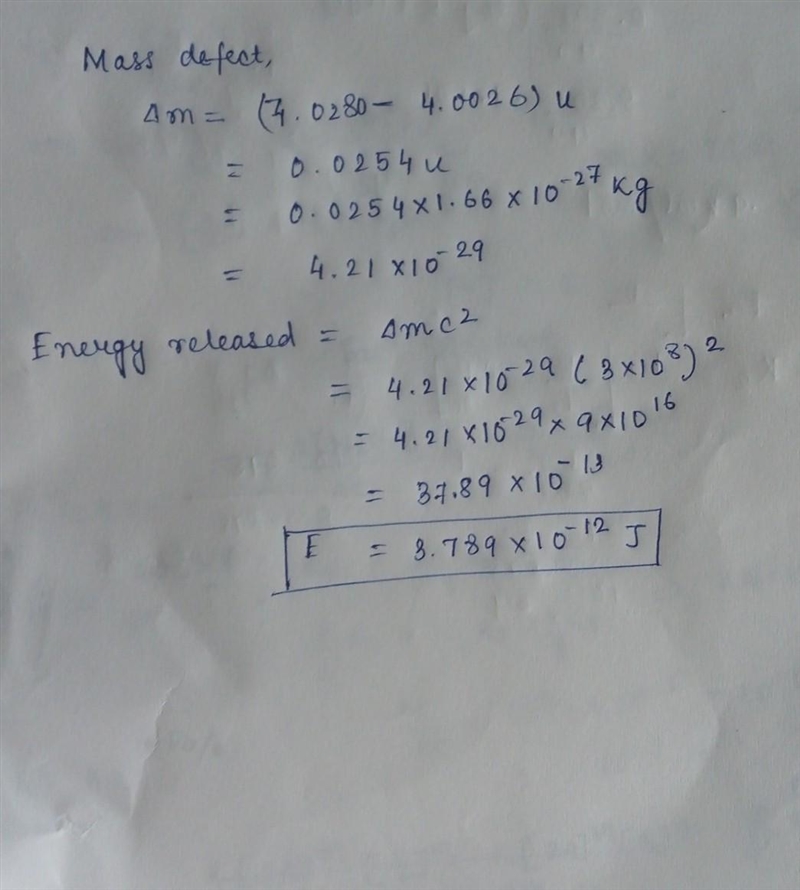 Mass defect,
Δm = (4.0280 - 4.0026) u
= 0.0254 u
= 0.0254 × 1.66 × 10⁻²⁷ Kg
= 4.21 × 10⁻²⁹
Energy released = Δmc²
= 4.21 × 10⁻²⁹ (3 × 10⁸)²
= 4.21 × 10⁻²⁹ × 9 × 10¹⁶
= 37.89 × 10⁻¹³
E = 3.789 × 10⁻¹² J